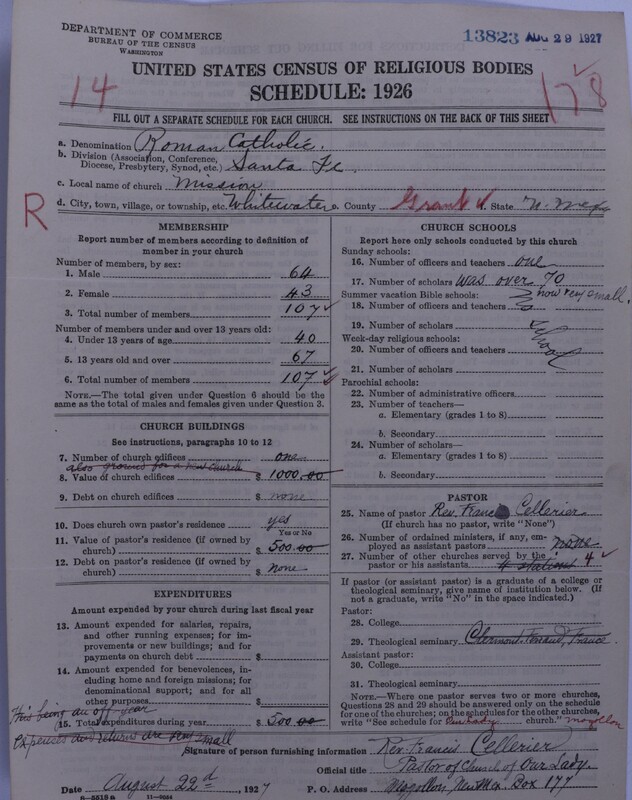 DEPARTMENT OF COMMERCE
BUREAU OF THE CENSUS
WASHINGTON
13823 AUG 29 1927
UNITED STATES CENSUS OF RELIGIOUS BODIES
SCHEDULE: 1926
14
178
FILL OUT A SEPARATE SCHEDULE FOR EACH CHURCH. SEE INSTRUCTIONS ON THE BACK OF THIS SHEET
a. Denomination Roman Catholic.
b. Division (Association, Conference,
Diocese, Presbytery, Synod, etc.) Santa Fe
c. Local name of church Mission
R
d. City, town, village, or township, etc. Whitewater e. County Grant f. State N. Mex
MEMBERSHIP
Report number of members according to definition of
member in your church
Number of members, by sex:
1. Male 64
2. Female 43
3. Total number of members 107
Number of members under and over 13 years old:
4. Under 13 years of age 40
5. 13 years old and over 67
6. Total number of members 107
NOTE.—The total given under Question 6 should be the
same as the total of males and females given under Question 3.
CHURCH BUILDINGS
See instructions, paragraphs 10 to 12
7. Number of church edifices one
also ground for a new church
8. Value of church edifices $ 1000.00
9. Debt on church edifices $ none
10. Does church own pastor's residence yes
Yes or No
11. Value of pastor's residence (if owned by
church) $ 500.00
12. Debt on pastor's residence (if owned by
church) $ none
EXPENDITURES
Amount expended by your church during last fiscal year
13. Amount expended for salaries, repairs,
and other running expenses; for im-
provements or new buildings; and for
payments on church debt $
14. Amount expended for benevolences, in-
cluding home and foreign missions; for
denominational support; and for all
other purposes $
This being an off year
15. Total expenditures during year $ 500.00
expenses and returns are small
CHURCH SCHOOLS
Report here only schools conducted by this church
Sunday schools:
16. Number of officers and teachers one
17. Number of scholars was over 70
now very small.
Summer vacation Bible schools:
18. Number of officers and teachers
19. Number of scholars
Week-day religious schools:
20. Number of officers and teachers
21. Number of scholars
Parochial schools:
22. Number of administrative officers
23. Number of teachers—
a. Elementary (grades 1 to 8)
b. Secondary
24. Number of scholars—
a. Elementary (grades 1 to 8)
b. Secondary
PASTOR
25. Name of pastor Rev. Francis Cellerier
(If church has no pastor, write "None")
26. Number of ordained ministers, if any, em-
ployed as assistant pastors none
27. Number of other churches served by the
pastor or his assistants 4 stations 4
If pastor (or assistant pastor) is a graduate of a college or
theological seminary, give name of institution below. (If
not a graduate, write "No" in the space indicated.)
Pastor:
28. College
29. Theological seminary Clermont-Ferrand, France
Assistant pastor:
30. College
31. Theological seminary
NOTE.—Where one pastor serves two or more churches,
Questions 28 and 29 should be answered only on the schedule
for one of the churches; on the schedules for the other churches,
write "See schedule for Our Lady church." Mogollon
Signature of person furnishing information Rev. Francis Cellerier
Official title Pastor of Church of Our Lady
Date August 22d, 1927 P. O. Address Mogollon, New Mex Box 177
8-5519a 11-9084